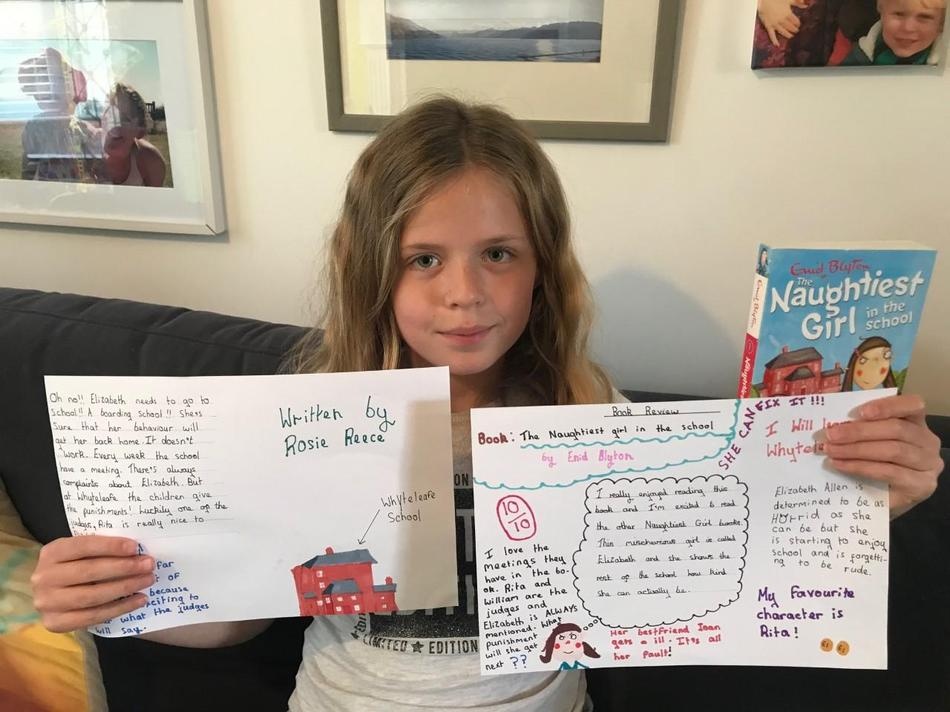 Oh no!! Elizabeth needs to go to
school!! A boarding school!! She's
sure that her behaviour will
get her back home. It doesn't
work. Every week the school
have a meeting. There's always
complaints about Elizabeth. But
at Whyteleafe the children give
the punishments! Luckily one of the
judges, Rita is really nice to
far
of
because
exciting to
what the judges
will say..
Written by
Rosie Reece
Whyteleafe
School
LIMITED ★ EDITION
Book Review
Book: The Naughtiest girl in the school
by Enid Blyton
SHE CAN FIX IT!!!
10/10
I love the
meetings they
have in the bo-
ok. Rita and
William are the
judges and
Elizabeth is ALWAYS
mentioned. What
punishment
will she get
next ??
I really enjoyed reading this
book and I'm excited to read
the other Naughtiest Girl books.
This mischievous girl is called
Elizabeth and she shows the
rest of the school how kind
she can actually be.
Her bestfriend Joan
gets a ill. It's all
her fault!
I will
Whytele
Elizabeth Allen is
determined to be as
Horrid as she
can be but she
is starting to enjoy
school and is forgetti-
ng to be rude.
My Favourite
character is
Rita!
Enid Blyton
The
Naughtiest
Girl in the
school